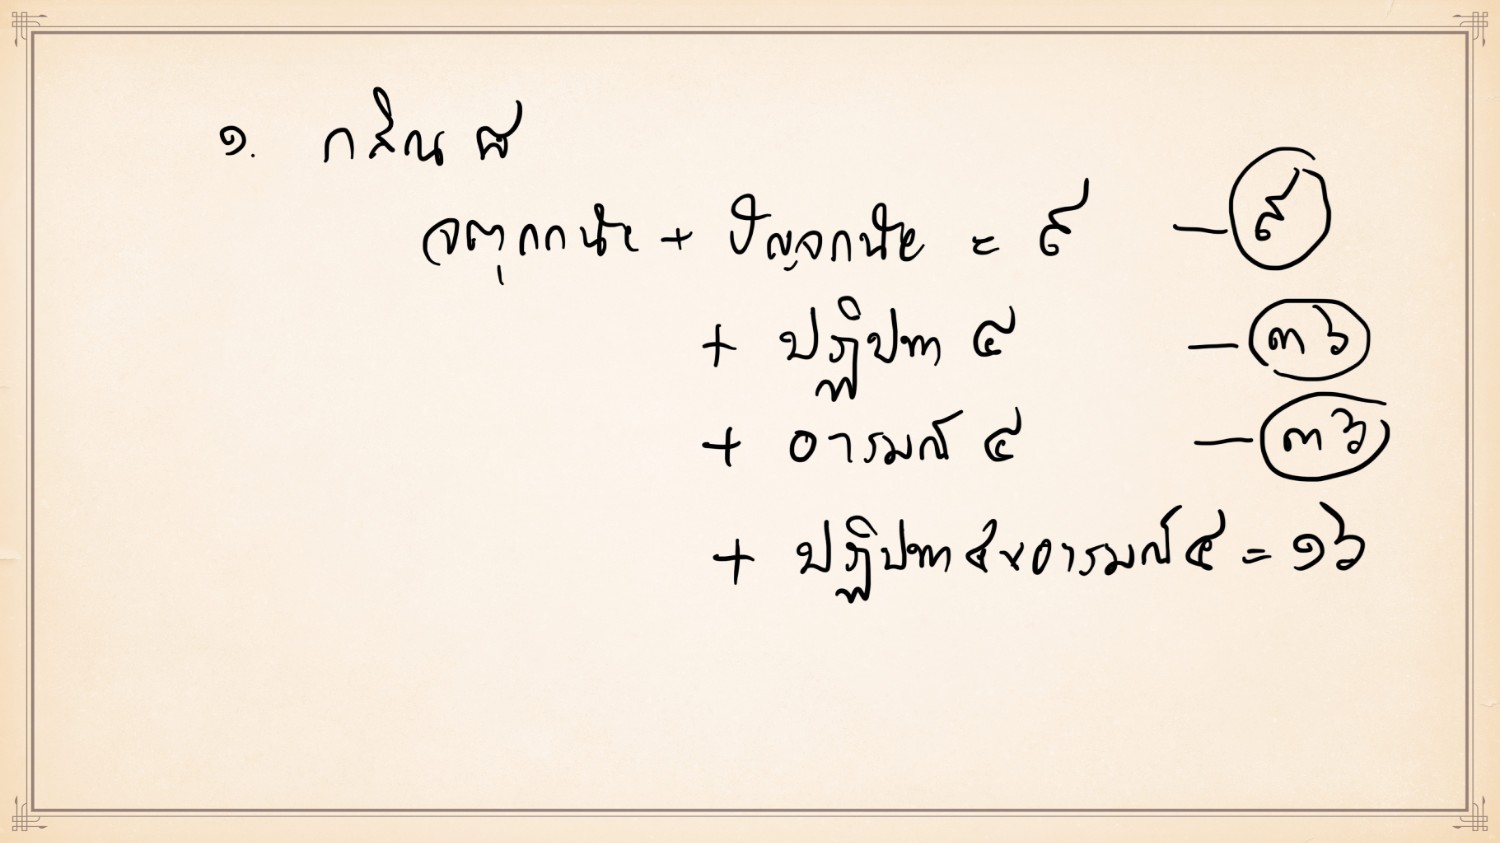 ๑. กสิณ ๘
จตุกกนัย + ปัญจกนัย = ๙ – ๙
+ ปฏิปทา ๔ – ๓๖
+ อารมณ์ ๔ – ๓๖
+ ปฏิปทา ๔ x อารมณ์ ๔ = ๑๖